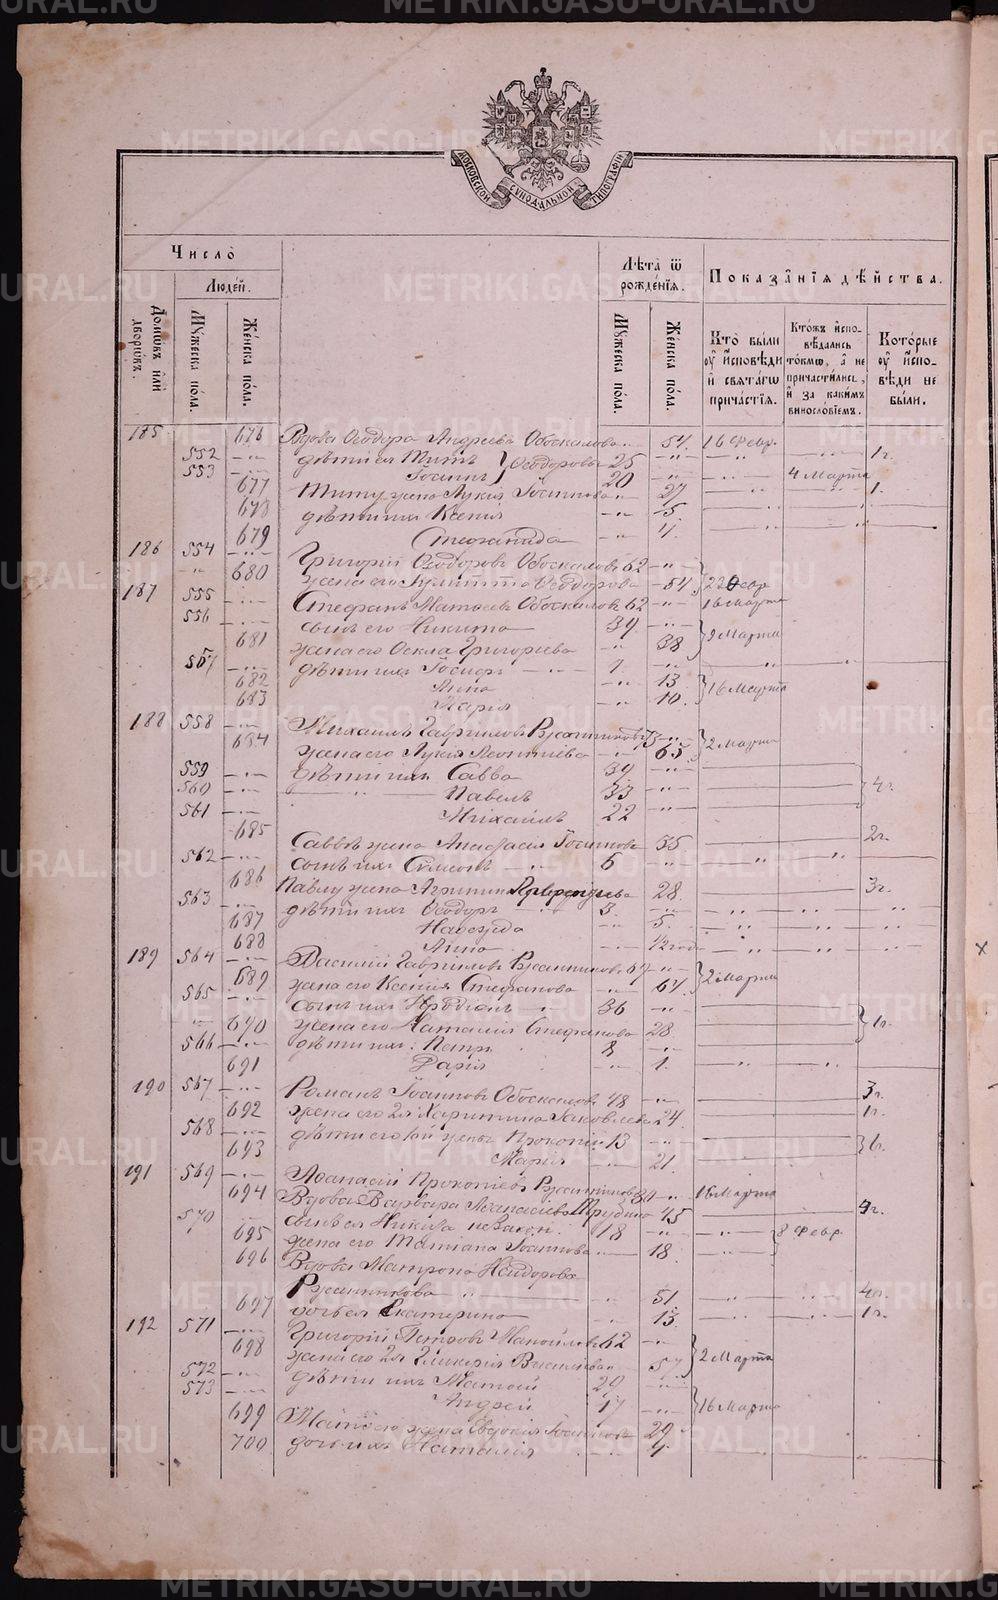 METRIKI.GASO-URAL.RU
МОСКОВСКОЙ СУНОДАЛЬНОЙ ТИПОГРАФІИ
Число̀
Людéй.
Домѡвъ и҆лѝ дворѡвъ.
Мꙋжеска по́ла.
Же́нска по́ла.
Лѣта̀ ѿ рожде́нїѧ.
Мꙋжеска по́ла.
Же́нска по́ла.
Показа̑нїѧ дѣ́йства.
Кто̀ бы́ли оу҆ и҆сповѣди и҆ свѧта́гѡ прича́стїѧ.
Кто́жъ и҆спо-вѣдались то́кмѡ, а҆ не причасти́лись, и҆ за каки́мъ винослóвїемъ.
Кото́рые оу҆ и҆спо-вѣди не бы́ли.
185 676 Вдова Ѳеодора Андреева Обоскалова 54 16 Февр.
552 дѣти ея Титъ Ѳеодоровы 25 1г.
553 Іоаннъ 20 4 Марта
677 Титу жена Лукія Іоаннова 27 1.
678 дѣти ихъ Ксенія 5
679 Стефанида 4
186 554 Григорій Ѳеодоровъ Обоскаловъ 62
680 жена его Ѳеодорова 54 22 Февр
187 555 Стефанъ Матѳеевъ Обоскаловъ 62 16 Марта
556 сынъ его Никита 39
681 жена его Ѳекла Григорьева 38 9 Марта
557 дѣти ихъ Іосифъ
682 Анна 13
683 Марія 10 16 Марта
188 558 Михаилъ Гавриловъ Ржанниковъ
684 жена его Лукія Леонтіева 65 2 Марта
559 дѣти ихъ Савва 39
560 Павелъ 33 4г.
561 Михаилъ 22
685 Саввѣ жена Анастасія Іоаннова 35 2г.
562 сынъ ихъ Симеонъ 6
686 Павлу жена Агрипина 28 3г.
563 дѣти ихъ Ѳеодоръ 3
687 Надежда 5
688 Анна ½ года
189 564 Василій Гавриловъ Ржанниковъ 67
689 жена его Ксенія Стефанова 64 2 Марта
565 сынъ ихъ Иродіонъ 36
690 жена его Наталія Стефанова 28 1г.
566 дѣти ихъ: Петръ 8
691 Дарія 1
190 567 Романъ Іоанновъ Обоскаловъ 48 3г.
692 жена его 2я Харитина Яковлева 24 1г.
568 дѣти его 1ой жены Прокопій 13
693 Марія 21
191 569 Аѳанасій Прокопіевъ Ржанниковъ 80 16 Марта
694 Вдова Варвара Аѳанасіева 45 4г.
570 сынъ ея Никита незакон. 18 8 Февр.
695 жена его Татіана Іоаннова 18
696 Вдова Матрона Исидорова
Ржанникова 51 4г.
697 дочь ея Екатерина 13 1г.
192 571 Григорій Петровъ Манойловъ 62
698 жена его 2я Гликерія Васильева 57 2 Марта
572 дѣти ихъ Матѳей 29
573 Андрей 17 16 Марта
699 Матѳею жена Евдокія Іоаннова 29
700 дочь ихъ Наталія 4